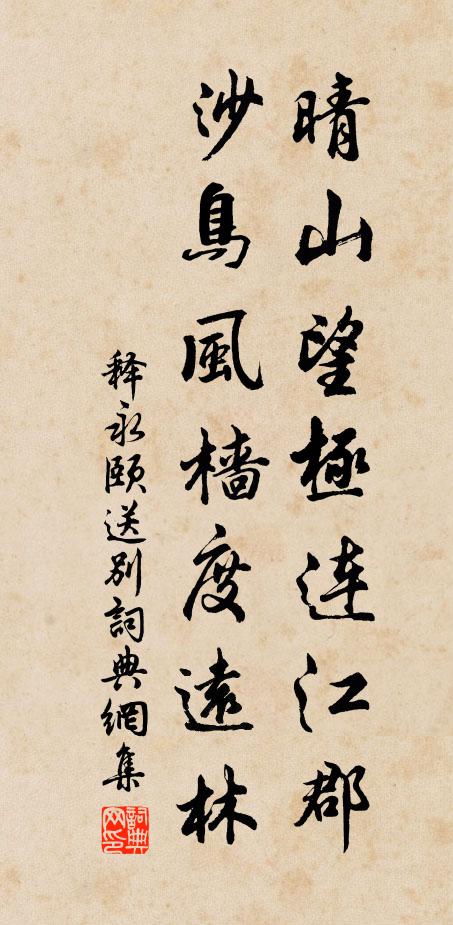 晴山望極連江郡
沙鳥風檣度遠林
释永頤送別詞典網集
詞典网印